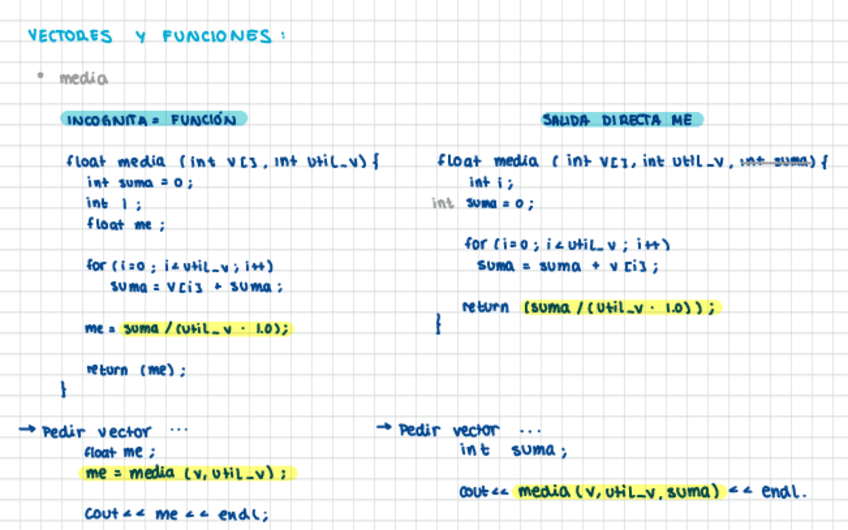 VECTORES Y FUNCIONES:
• media
INCOGNITA = FUNCIÓN
float media (int v[], int util_v) {
int suma = 0;
int i;
float me;
for (i=0; i<util_v; i++)
suma = v[i] + suma;
me = suma / (util_v · 1.0);
return (me);
}
→ Pedir vector ...
float me;
me = media (v, util_v);
cout << me << endl;
SALIDA DIRECTA ME
float media (int v[], int util_v, int suma) {
int i;
int suma = 0;
for (i=0; i<util_v; i++)
suma = suma + v[i];
return (suma / (util_v · 1.0));
}
→ Pedir vector ...
int suma;
cout << media (v, util_v, suma) << endl.